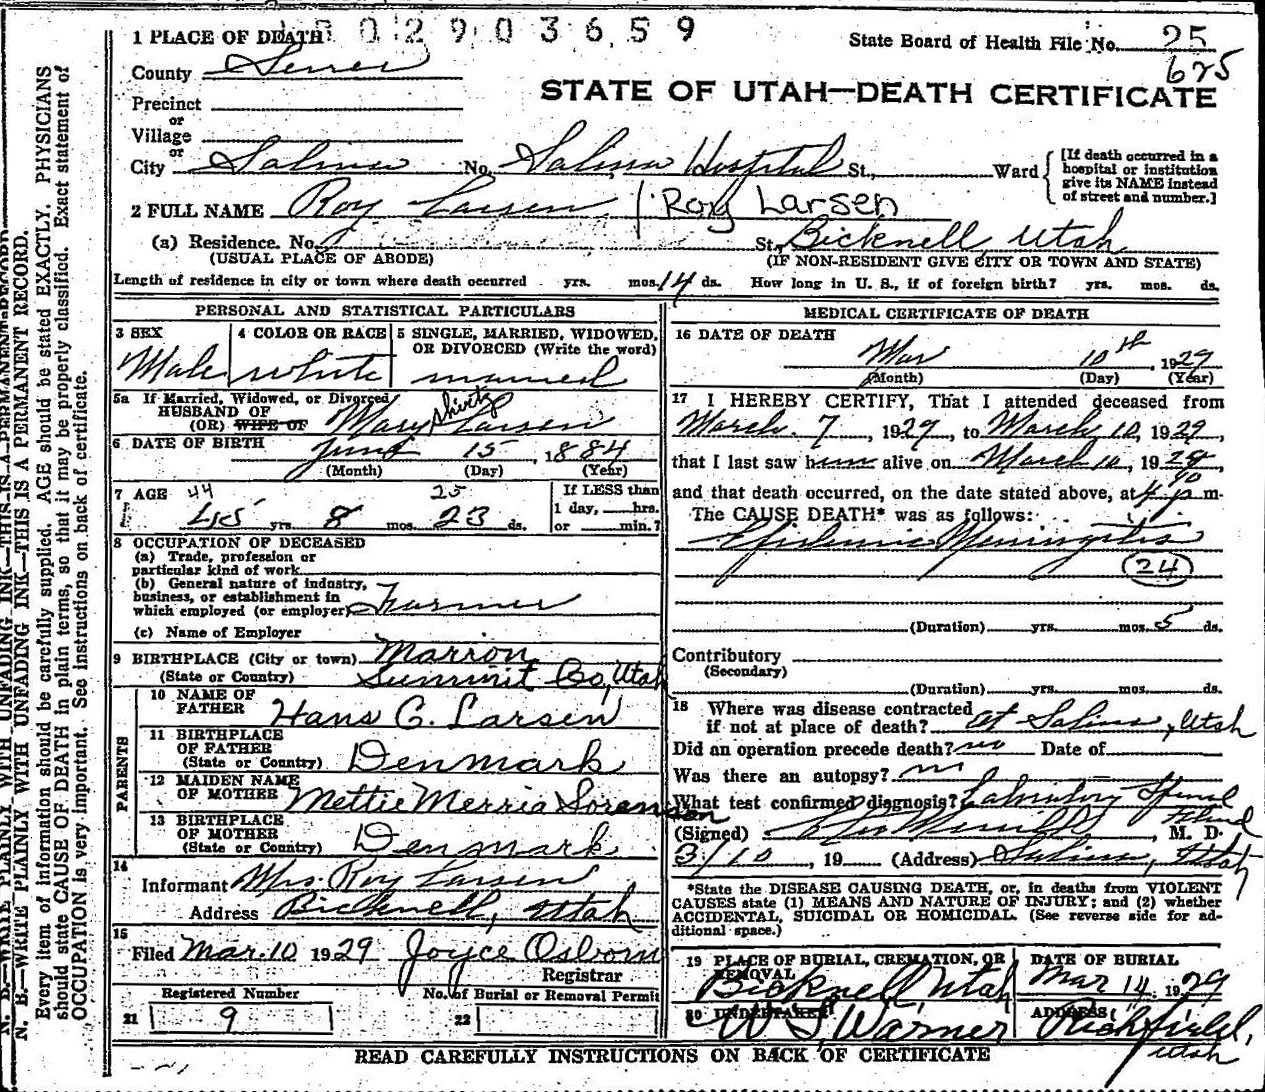 N. B.—WRITE PLAINLY WITH UNFADING INK—THIS IS A PERMANENT RECORD.
Every item of information should be carefully supplied. AGE should be stated EXACTLY. PHYSICIANS
should state CAUSE OF DEATH in plain terms, so that it may be properly classified. Exact statement of
OCCUPATION is very important. See instructions on back of certificate.
02903659
1 PLACE OF DEATH
State Board of Health File No. 25
625
County Sevier
STATE OF UTAH—DEATH CERTIFICATE
Precinct
or
Village
or
City Salina No. Salina Hospital St., Ward
[If death occurred in a
hospital or institution
give its NAME instead
of street and number.]
2 FULL NAME Roy Larsen / Roy Larsen
(a) Residence. No. St., Bicknell, Utah
(USUAL PLACE OF ABODE) (IF NON-RESIDENT GIVE CITY OR TOWN AND STATE)
Length of residence in city or town where death occurred yrs. mos. 14 ds. How long in U. S., if of foreign birth? yrs. mos. ds.
PERSONAL AND STATISTICAL PARTICULARS
3 SEX
Male
4 COLOR OR RACE
white
5 SINGLE, MARRIED, WIDOWED,
OR DIVORCED (Write the word)
married
5a If Married, Widowed, or Divorced
HUSBAND OF
(OR) WIFE OF Mary Larsen
6 DATE OF BIRTH June 15, 1884
(Month) (Day) (Year)
7 AGE 44 25
45 yrs. 8 mos. 23 ds.
If LESS than
1 day, hrs.
or min.?
8 OCCUPATION OF DECEASED
(a) Trade, profession or
particular kind of work
(b) General nature of industry,
business, or establishment in
which employed (or employer) Farmer
(c) Name of Employer
9 BIRTHPLACE (City or town) Marrion
(State or Country) Summit Co, Utah
PARENTS
10 NAME OF
FATHER Hans C. Larsen
11 BIRTHPLACE
OF FATHER
(State or Country) Denmark
12 MAIDEN NAME
OF MOTHER Mettie Merria Sorensen
13 BIRTHPLACE
OF MOTHER
(State or Country) Denmark
14
Informant Mrs. Roy Larsen
Address Bicknell, Utah
15
Filed Mar. 10 1929 Joyce Osborn
Registrar
Registered Number
21 9
No. of Burial or Removal Permit
22
MEDICAL CERTIFICATE OF DEATH
16 DATE OF DEATH
Mar 10th, 1929
(Month) (Day) (Year)
17 I HEREBY CERTIFY, That I attended deceased from
March 7, 1929, to March 10, 1929,
that I last saw him alive on March 10, 1929,
and that death occurred, on the date stated above, at 4 p m.
The CAUSE DEATH* was as follows:
Epidemic Meningitis
24
(Duration) yrs. mos. 5 ds.
Contributory
(Secondary)
(Duration) yrs. mos. ds.
18 Where was disease contracted
if not at place of death? at Salina, Utah
Did an operation precede death? no Date of
Was there an autopsy? no
What test confirmed diagnosis? Laboratory Spinal
Fluid
(Signed) M. D.
3/10, 19 (Address) Salina, Utah
*State the DISEASE CAUSING DEATH, or, in deaths from VIOLENT
CAUSES state (1) MEANS AND NATURE OF INJURY; and (2) whether
ACCIDENTAL, SUICIDAL OR HOMICIDAL. (See reverse side for ad-
ditional space.)
19 PLACE OF BURIAL, CREMATION, OR
REMOVAL
Bicknell, Utah
DATE OF BURIAL
Mar 14, 1929
20 UNDERTAKER
W S Warner
ADDRESS
Richfield,
Utah
READ CAREFULLY INSTRUCTIONS ON BACK OF CERTIFICATE